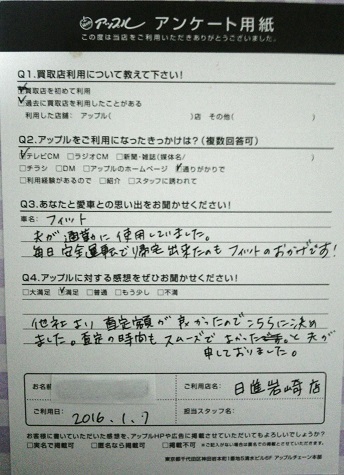 アップル アンケート用紙
この度は当店をご利用いただきありがとうございました。
Q1.買取店利用について教えて下さい!
□買取店を初めて利用
□過去に買取店を利用したことがある
利用した店舗: アップル( )店 その他( )
Q2.アップルをご利用になったきっかけは?(複数回答可)
□テレビCM □ラジオCM □新聞・雑誌(媒体名/ )
□チラシ □DM □アップルのホームページ □通りがかりで
□利用経験があるので □紹介 □スタッフに誘われて
Q3.あなたと愛車との思い出をお聞かせください!
車名: フィット
夫が通勤に使用していました。
毎日安全運転で帰宅出来たのもフィットのおかげです!
Q4.アップルに対する感想をぜひお聞かせください!
□大満足 □満足 □普通 □もう少し □不満
他社より査定額が良かったのでこちらに決め
ました。査定の時間もスムーズでよかった。と夫が
申しておりました。
お名前
ご利用店名: 日進岩崎店
ご利用日: 2016.1.7
担当スタッフ名:
お客様に書いていただいた感想を、アップルHPや広告に掲載させていただいてもよろしいでしょうか?
東京都千代田区神田岩本町1番地 アップルチェーン本部